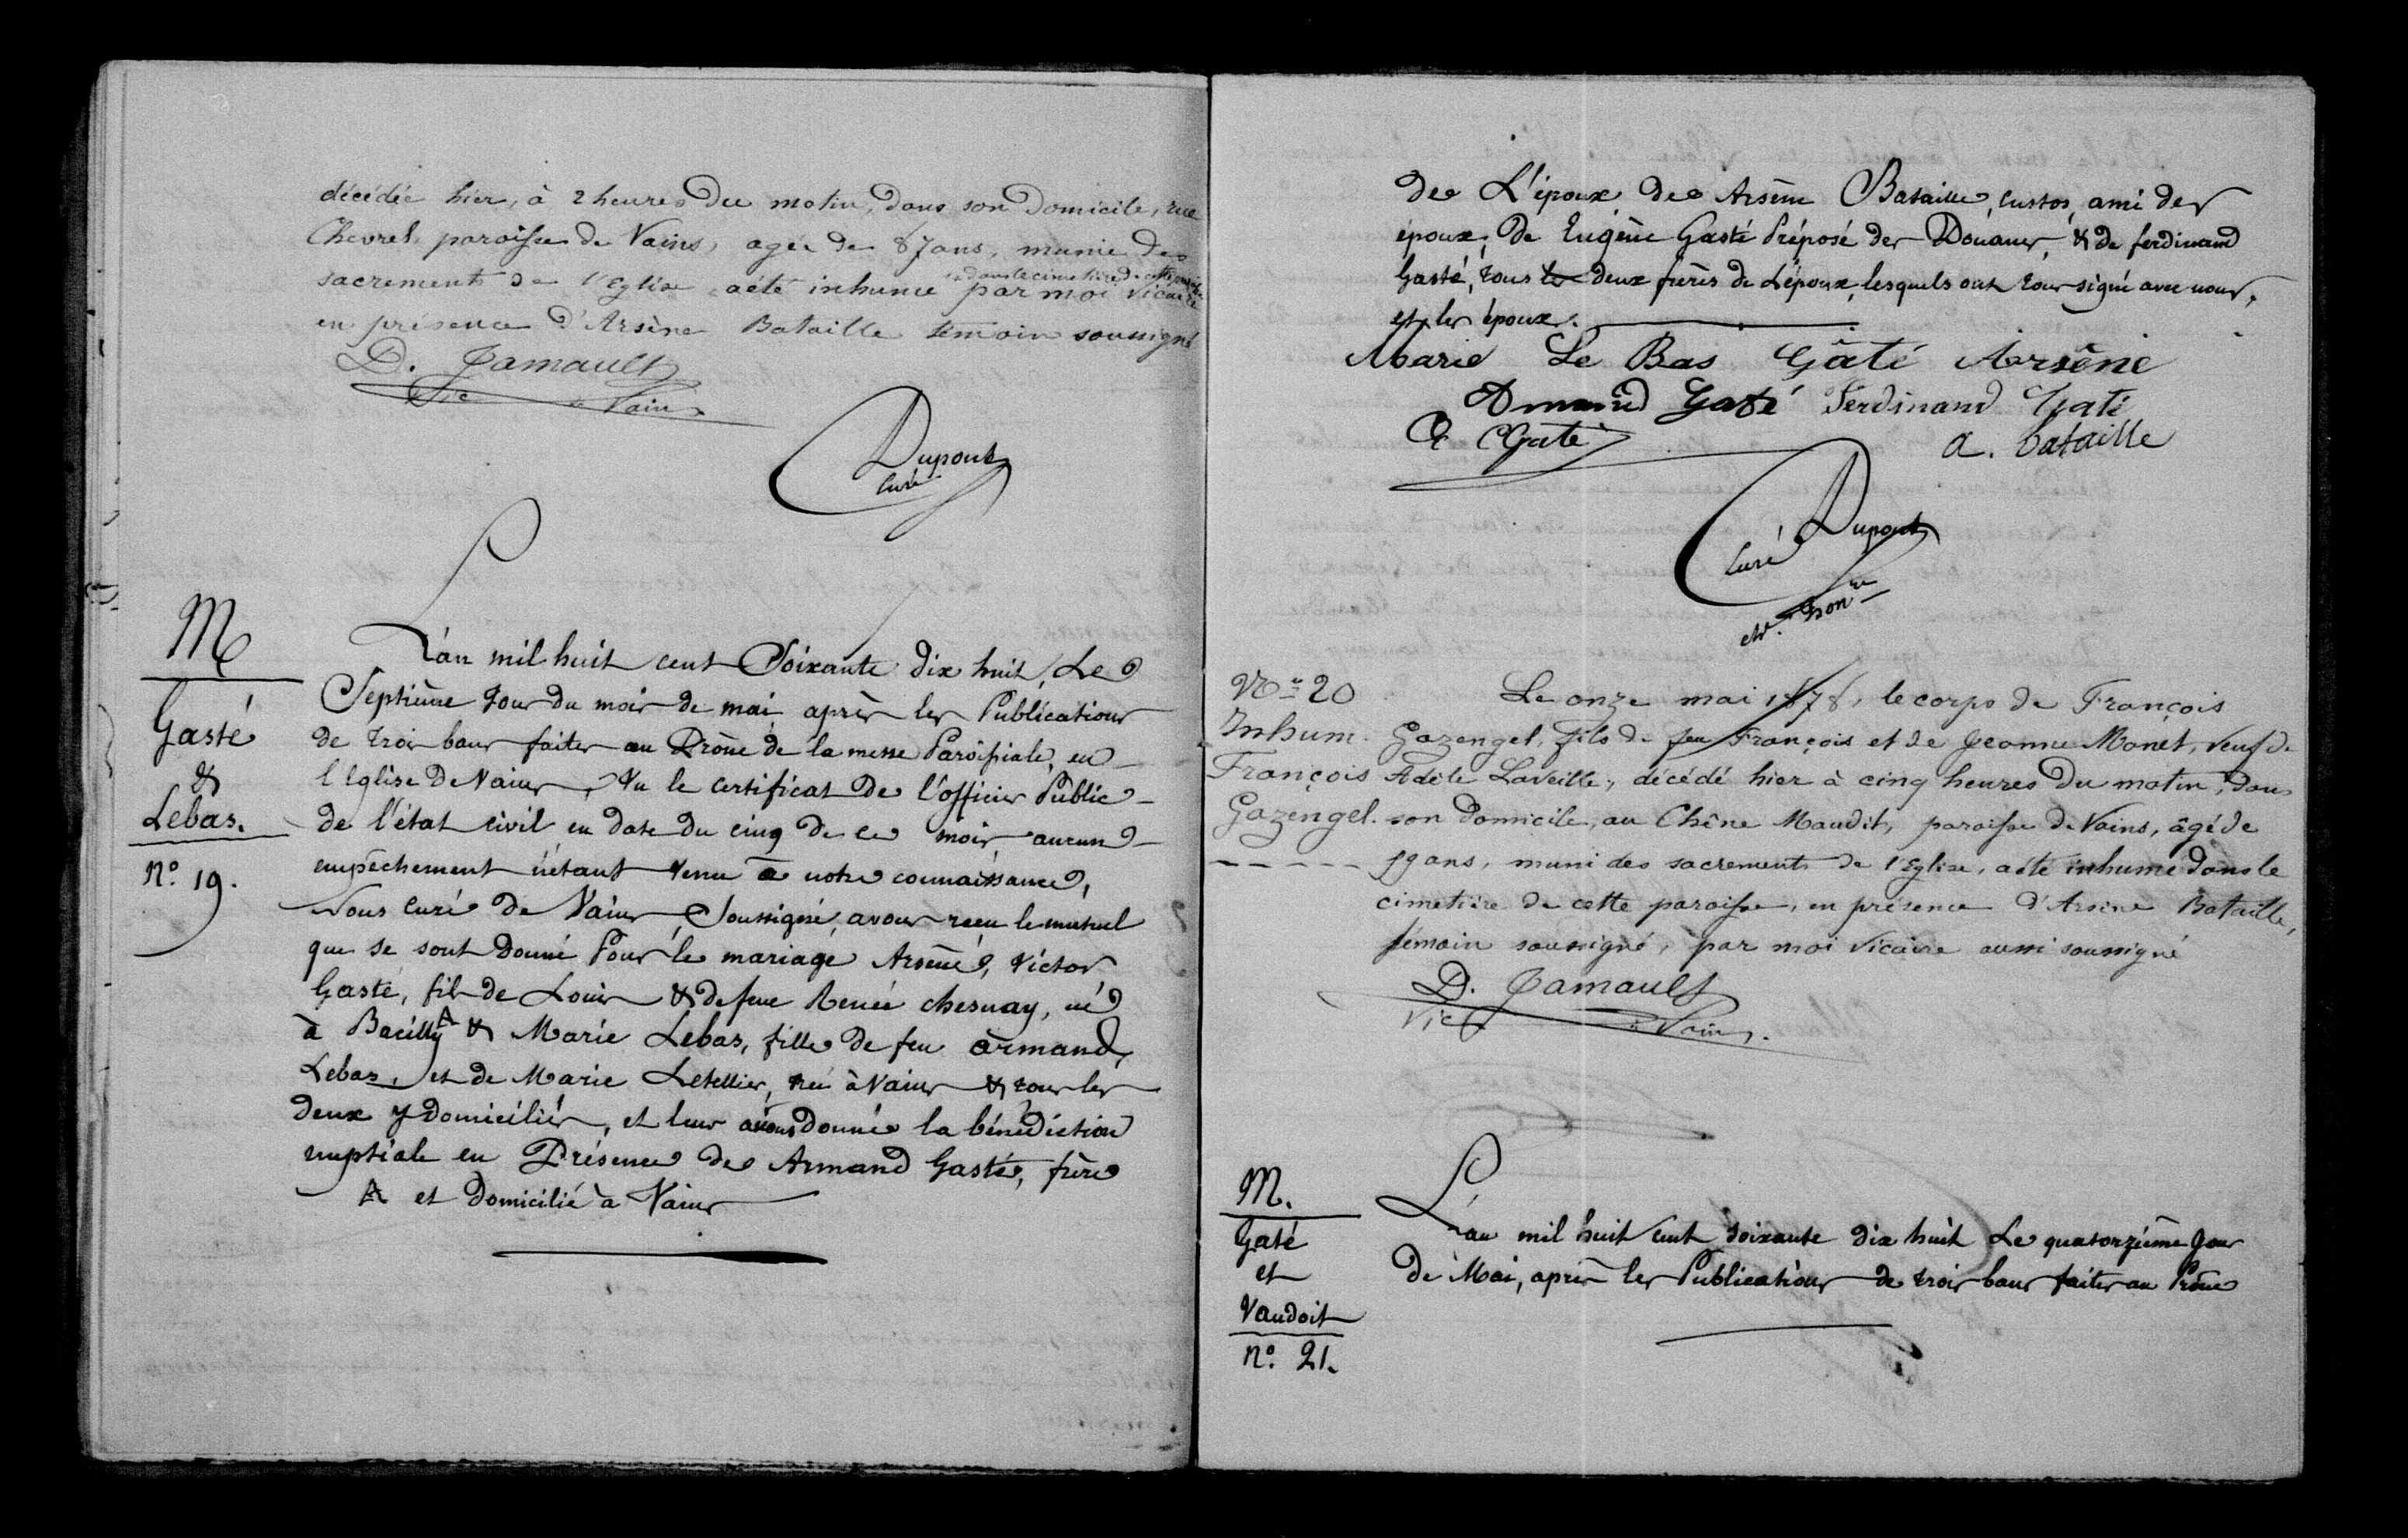 décédée hier, à 2 heures du matin, dans son domicile, rue
Chevrel, paroisse de Vains, agée de 87 ans, munie des
dans le cimetière de cette paroisse
sacrements de l'Eglise a été inhumé par moi Vicaire
en présence d'Arsène Bataille témoin soussigné
D. Jamault
Vic de Vains
Dupont
Curé
M
Gasté
&
Lebas.
No. 19.
L'an mil huit cent Soixante dix huit, Le
Septième jour du mois de mai après les Publications
de trois bans faites au Prône de la messe Paroissiale, en
l'Eglise de Vains, Vu le certificat de l'officier Public
de l'état civil en date du cinq de ce mois, aucun
empêchement n'étant venu à notre connaissance,
Nous curé de Vains, Soussigné, avons reçu le mutuel
que se sont donné Pour le mariage Arsène, Victor
Gasté, fils de Louis & de feue Renée chesnay, né
à Bacilly A & Marie Lebas, fille de feu armand,
Lebas, et de Marie Letellier, née à Vains & tous les
deux y domiciliés, et leur avons donné la bénédiction
nuptiale en Présence de Armand Gasté, frère
A et domicilié à Vains
de L'époux, de Arsène Bataille, custos, ami des
époux, de Eugène Gasté Préposé des Douanes, & de ferdinand
Gasté, tous les deux frères de L'époux, lesquels ont tous signé avec nous,
et les époux.
Marie Le Bas Gâté Arsène
Armand Gaté Ferdinand Gaté
E Gaté a. bataille
Dupont
Curé
ch. hon.re
No. 20
Inhum.
François
Gazengel.
Le onze mai 1878, le corps de François
Gazengel, fils de feu François et de Jeanne Monet, veuf de
Adèle Laveille, décédé hier à cinq heures du matin, dans
son domicile, au Chêne Maudit, paroisse de Vains, âgé de
59 ans, muni des sacrements de l'Eglise, a été inhumé dans le
cimetière de cette paroisse, en présence d'Arsène Bataille,
témoin soussigné, par moi Vicaire aussi soussigné
D. Jamault
Vic de Vains.
M.
Gaté
et
Vaudoit
No. 21.
L'an mil huit cent soixante dix huit Le quatorzième jour
de Mai, après les Publications de trois bans faites au Prône